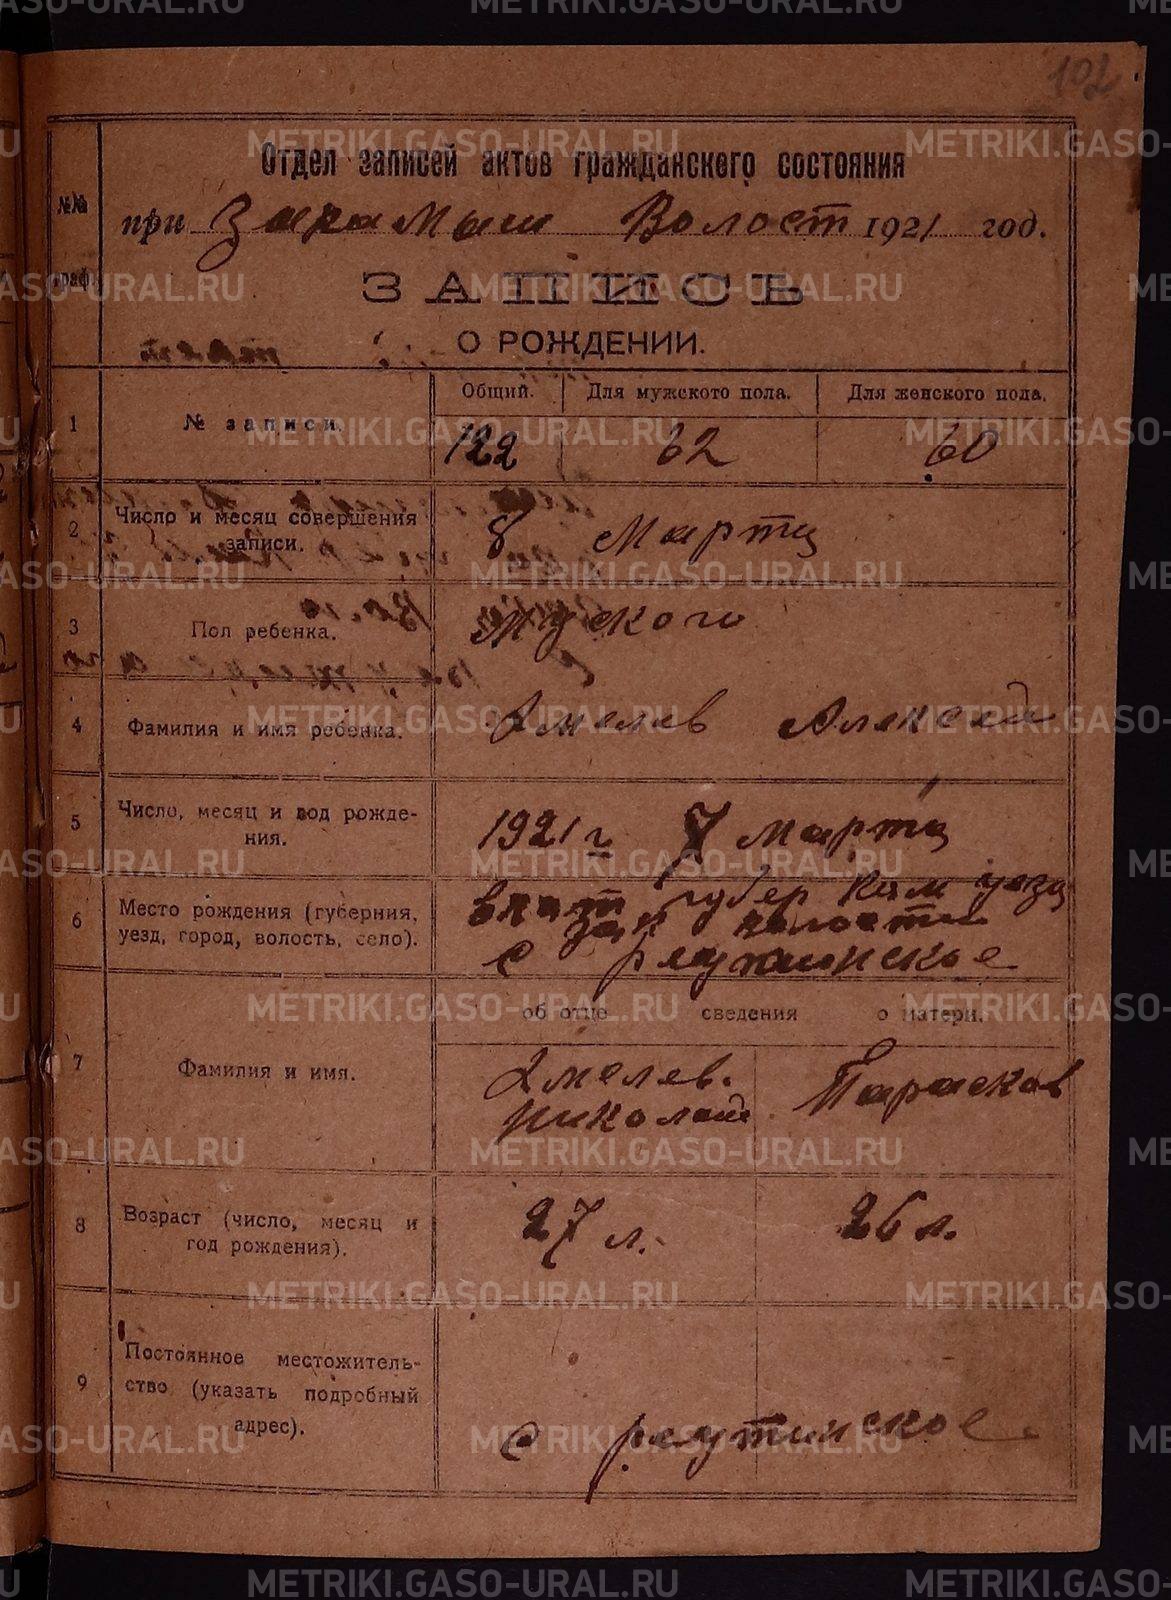 102
Отдел записей актов гражданского состояния
№№ граф.
при Закамыш Волост 1921 год.
ЗАПИСЬ
О РОЖДЕНИИ.
1 № записи. Общий. Для мужского пола. Для женского пола.
122 62 60
2 Число и месяц совершения записи.
8 Марта
3 Пол ребенка.
Мускога
4 Фамилия и имя ребенка.
Хмелев Алексей
5 Число, месяц и год рождения.
1921 г 7 марта
6 Место рождения (губерния, уезд, город, волость, село).
Вят губер Кам уезд
Зак волости
с реутинское
об отце сведения о матери.
7 Фамилия и имя.
Хмелев. Парасков
николай
8 Возраст (число, месяц и год рождения).
27 л. 26 л.
9 Постоянное местожительство (указать подробный адрес).
с реутинское
METRIKI.GASO-URAL.RU